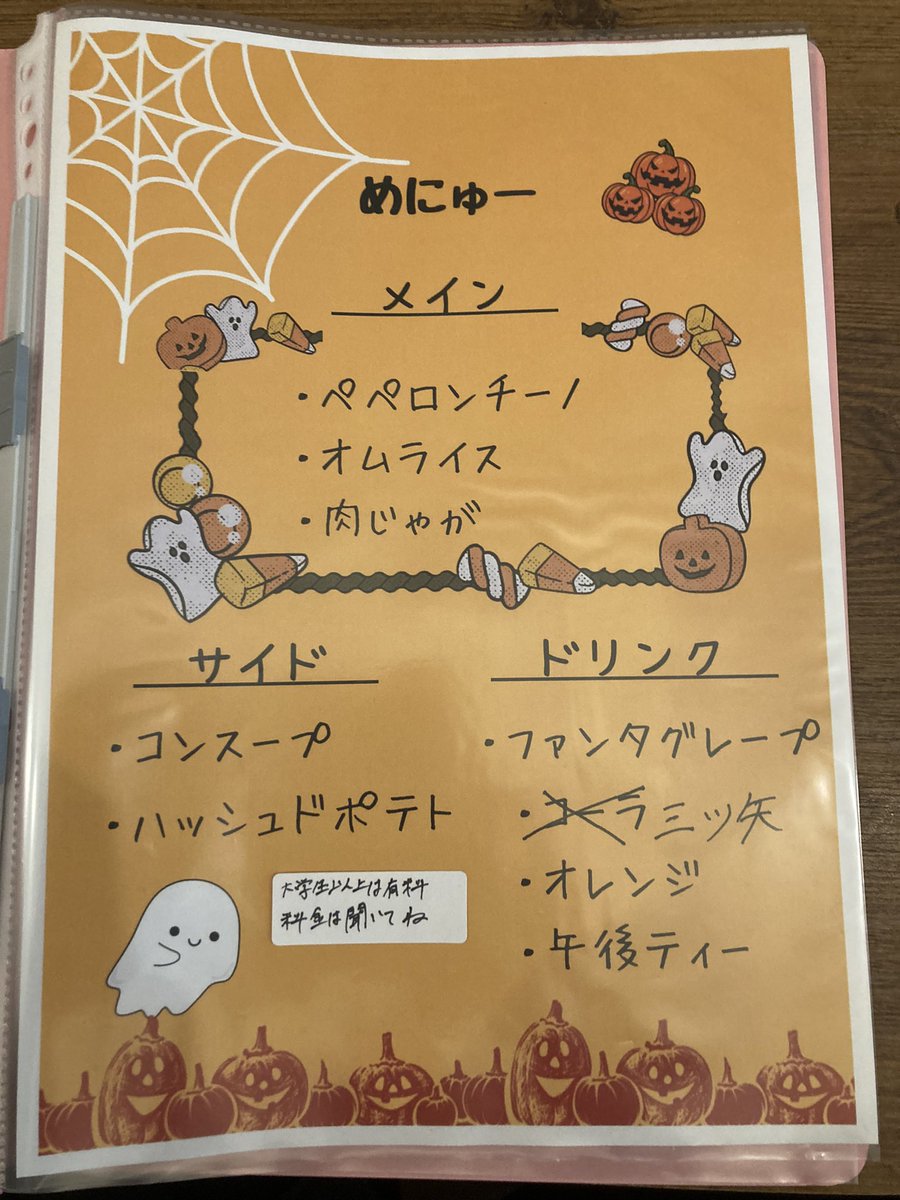 めにゅー
メイン
・ペペロンチーノ
・オムライス
・肉じゃが
サイド
・コンスープ
・ハッシュドポテト
ドリンク
・ファンタグレープ
・コーラ三ツ矢
・オレンジ
・午後ティー
大学生以上は有料
料金は聞いてね